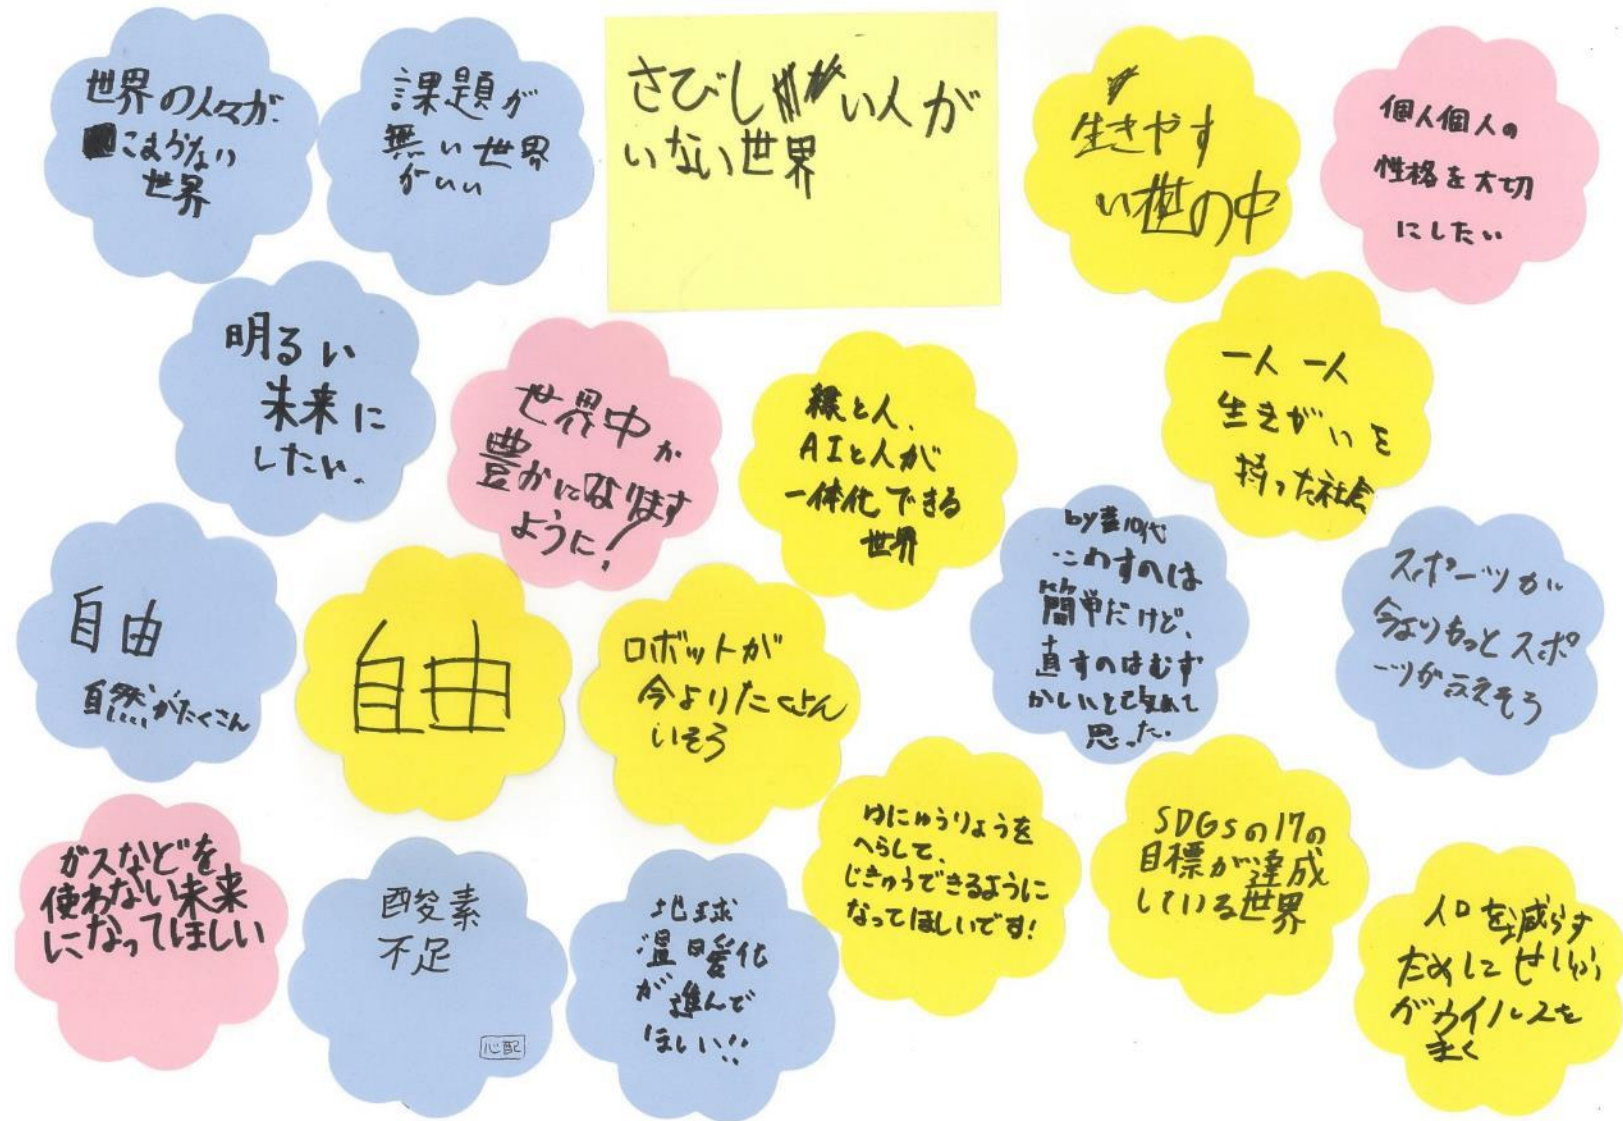 世界の人々が
こまらない
世界
課題が
無い世界
がいい
さびしい人が
いない世界
生きやす
い世の中
個人個人の
性格を大切
にしたい
明るい
未来に
したい、
世界中が
豊かになります
ように!
緑と人、
AIと人が
一体化できる
世界
一人一人
生きがいを
持った社会
自由
自然がたくさん
自由
ロボットが
今よりたくさん
いそう
by 10代
こわすのは
簡単だけど、
直すのはむず
かしいと改めて
思った。
スポーツが
今よりもっとスポ
ーツがふえそう
ガスなどを
使わない未来
になってほしい
酸素
不足
心配
地球
温暖化
が進んで
ほしい!!
ゆにゅうりょうを
へらして、
じきゅうできるように
なってほしいです!
SDGsの17の
目標が達成
している世界
人口を減らす
ためにせいふ
がウイルスを
まく